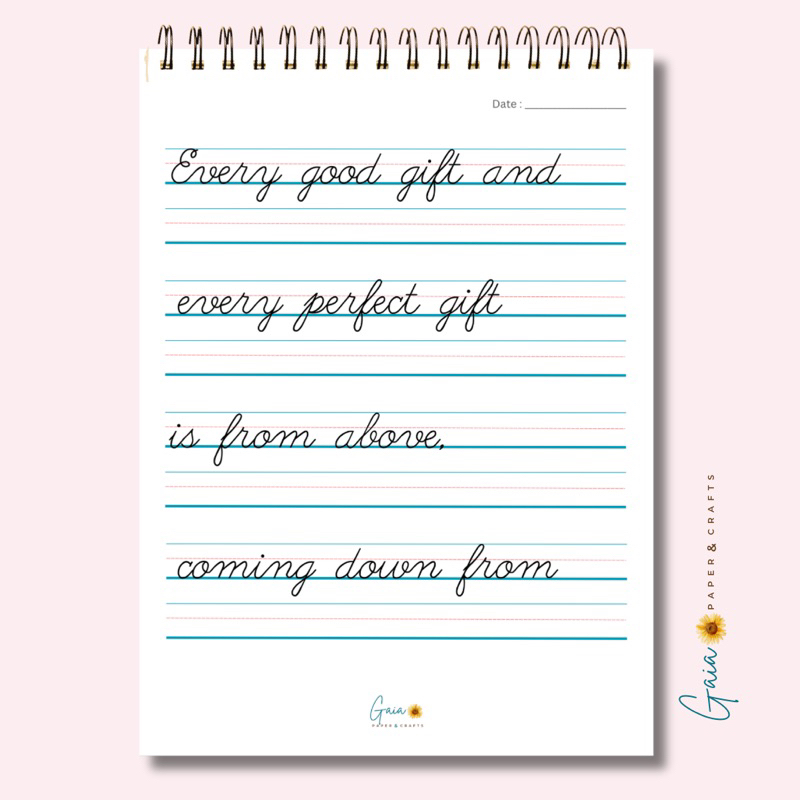 Date : ____________________
Every good gift and
every perfect gift
is from above,
coming down from
Gaia
PAPER & CRAFTS
Gaia PAPER & CRAFTS